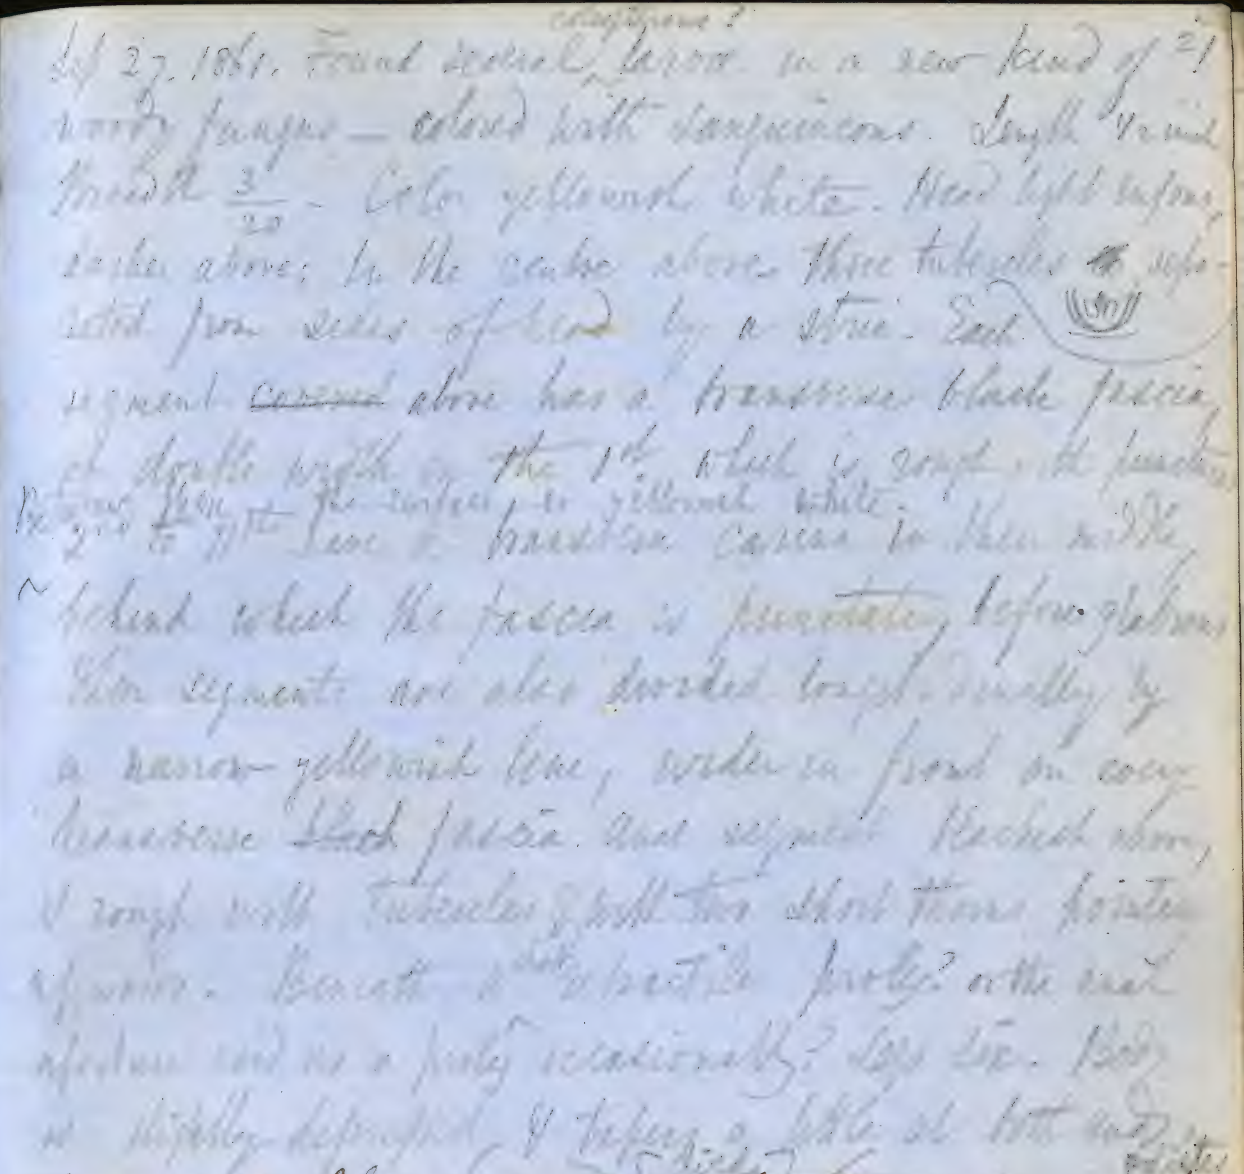 coleopterous?
27
Sep 27. 1861. Found several larvae in a new kind of
woody fungus — colored with sanguineous. Length 1/2 inch
Breadth 3/20 - Color yellowish white. Head light rufous,
darker above; In the centre above three tubercles sepa-
rated from sides of head by a stria. Each
segment above has a transverse black fascia,
of double width in the 1st, which is rough with punctures
Between them the surface is yellowish white.
2nd to 11th have a transverse carina in their middle,
behind which the fascia is punctate, before glabrous
These segments are also divided longitudinally by
a narrow yellowish line, wider in front on every
transverse black fascia. Anal segment blackish above,
& rough with tubercles & with two short thorns pointed
upward. Beneath a short retractile proleg? or the anal
aperture used as a proleg occasionally? Legs six. Body
is slightly depressed, & tapers a little at both ends